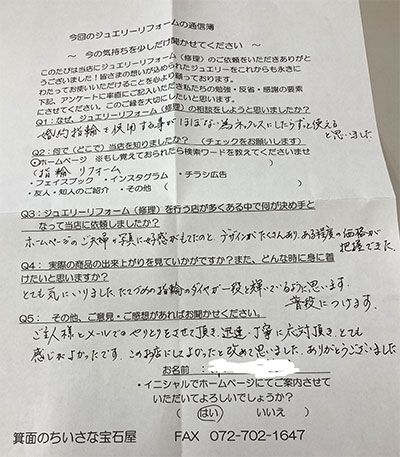 今回のジュエリーリフォームの通信簿
～ 今の気持ちを少しだけ聞かせてください ～
このたびは当店にジュエリーリフォーム（修理）のご依頼をいただきありがと
うございました！皆さまの想いが込められたジュエリーをこれからも永きに
わたってお使いいただけることを心より願っております。
下記、アンケートに率直にご記入いただき私たちの勉強・反省・感謝の要素
にさせてください。このご縁を大切にしたいと思います。
Q1：なぜ、ジュエリーリフォーム（修理）の相談をしようと思いましたか？
婚約指輪を使用する事がほぼない為ネックレスにしたらずっと使える
と思いました
Q2：何で（どこで）当店を知りましたか？ （チェックをお願いします）
・ホームページ ※もし覚えておられたら検索ワードを教えてくださいませ
（指輪 リフォーム ）
・フェイスブック ・インスタグラム ・チラシ広告
・友人・知人のご紹介 ・その他（ ）
Q3：ジュエリーリフォーム（修理）を行う店が多くある中で何が決め手と
なって当店に依頼しましたか？
ホームページのご夫婦の写真に好感がもてたのと、デザインがたくさんあり、ある程度の価格が
把握できた。
Q4： 実際の商品の出来上がりを見ていかがですか？また、どんな時に身に着
けたいと思いますか？
とても気にいりました。たて爪の指輪のダイヤが一段と輝いているように思います。
普段につけます。
Q5： その他、ご意見・ご感想があればお聞かせください。
ご主人様とメールでのやりとりをさせて頂き、迅速、丁寧に応対頂き、とても
感じがよかったです。このお店にしてよかったと改めて思いました。ありがとうございました
お名前：
・イニシャルでホームページにてご案内させて
いただいてよろしいでしょうか？
（ はい いいえ ）
箕面のちいさな宝石屋 FAX 072-702-1647